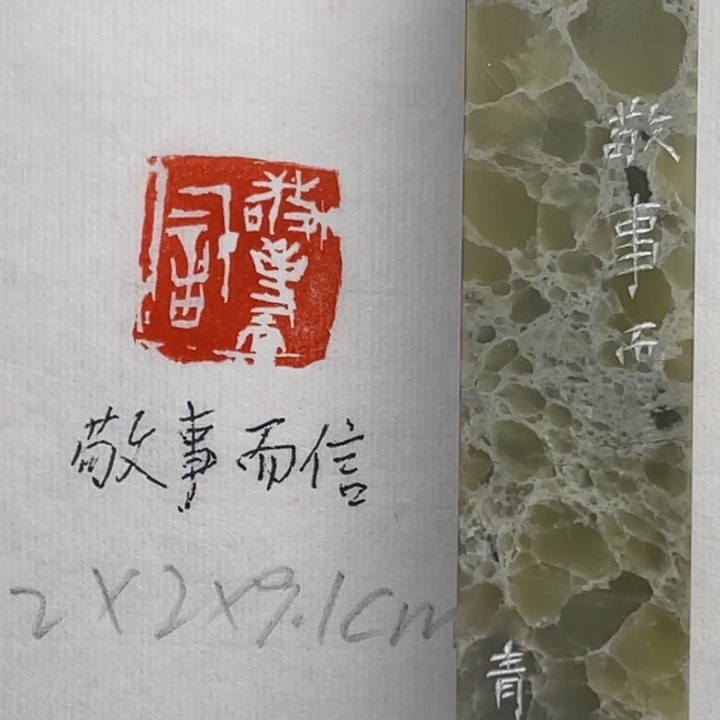 敬事而信
敬事而信
2×2×9.1cm
敬事而
青